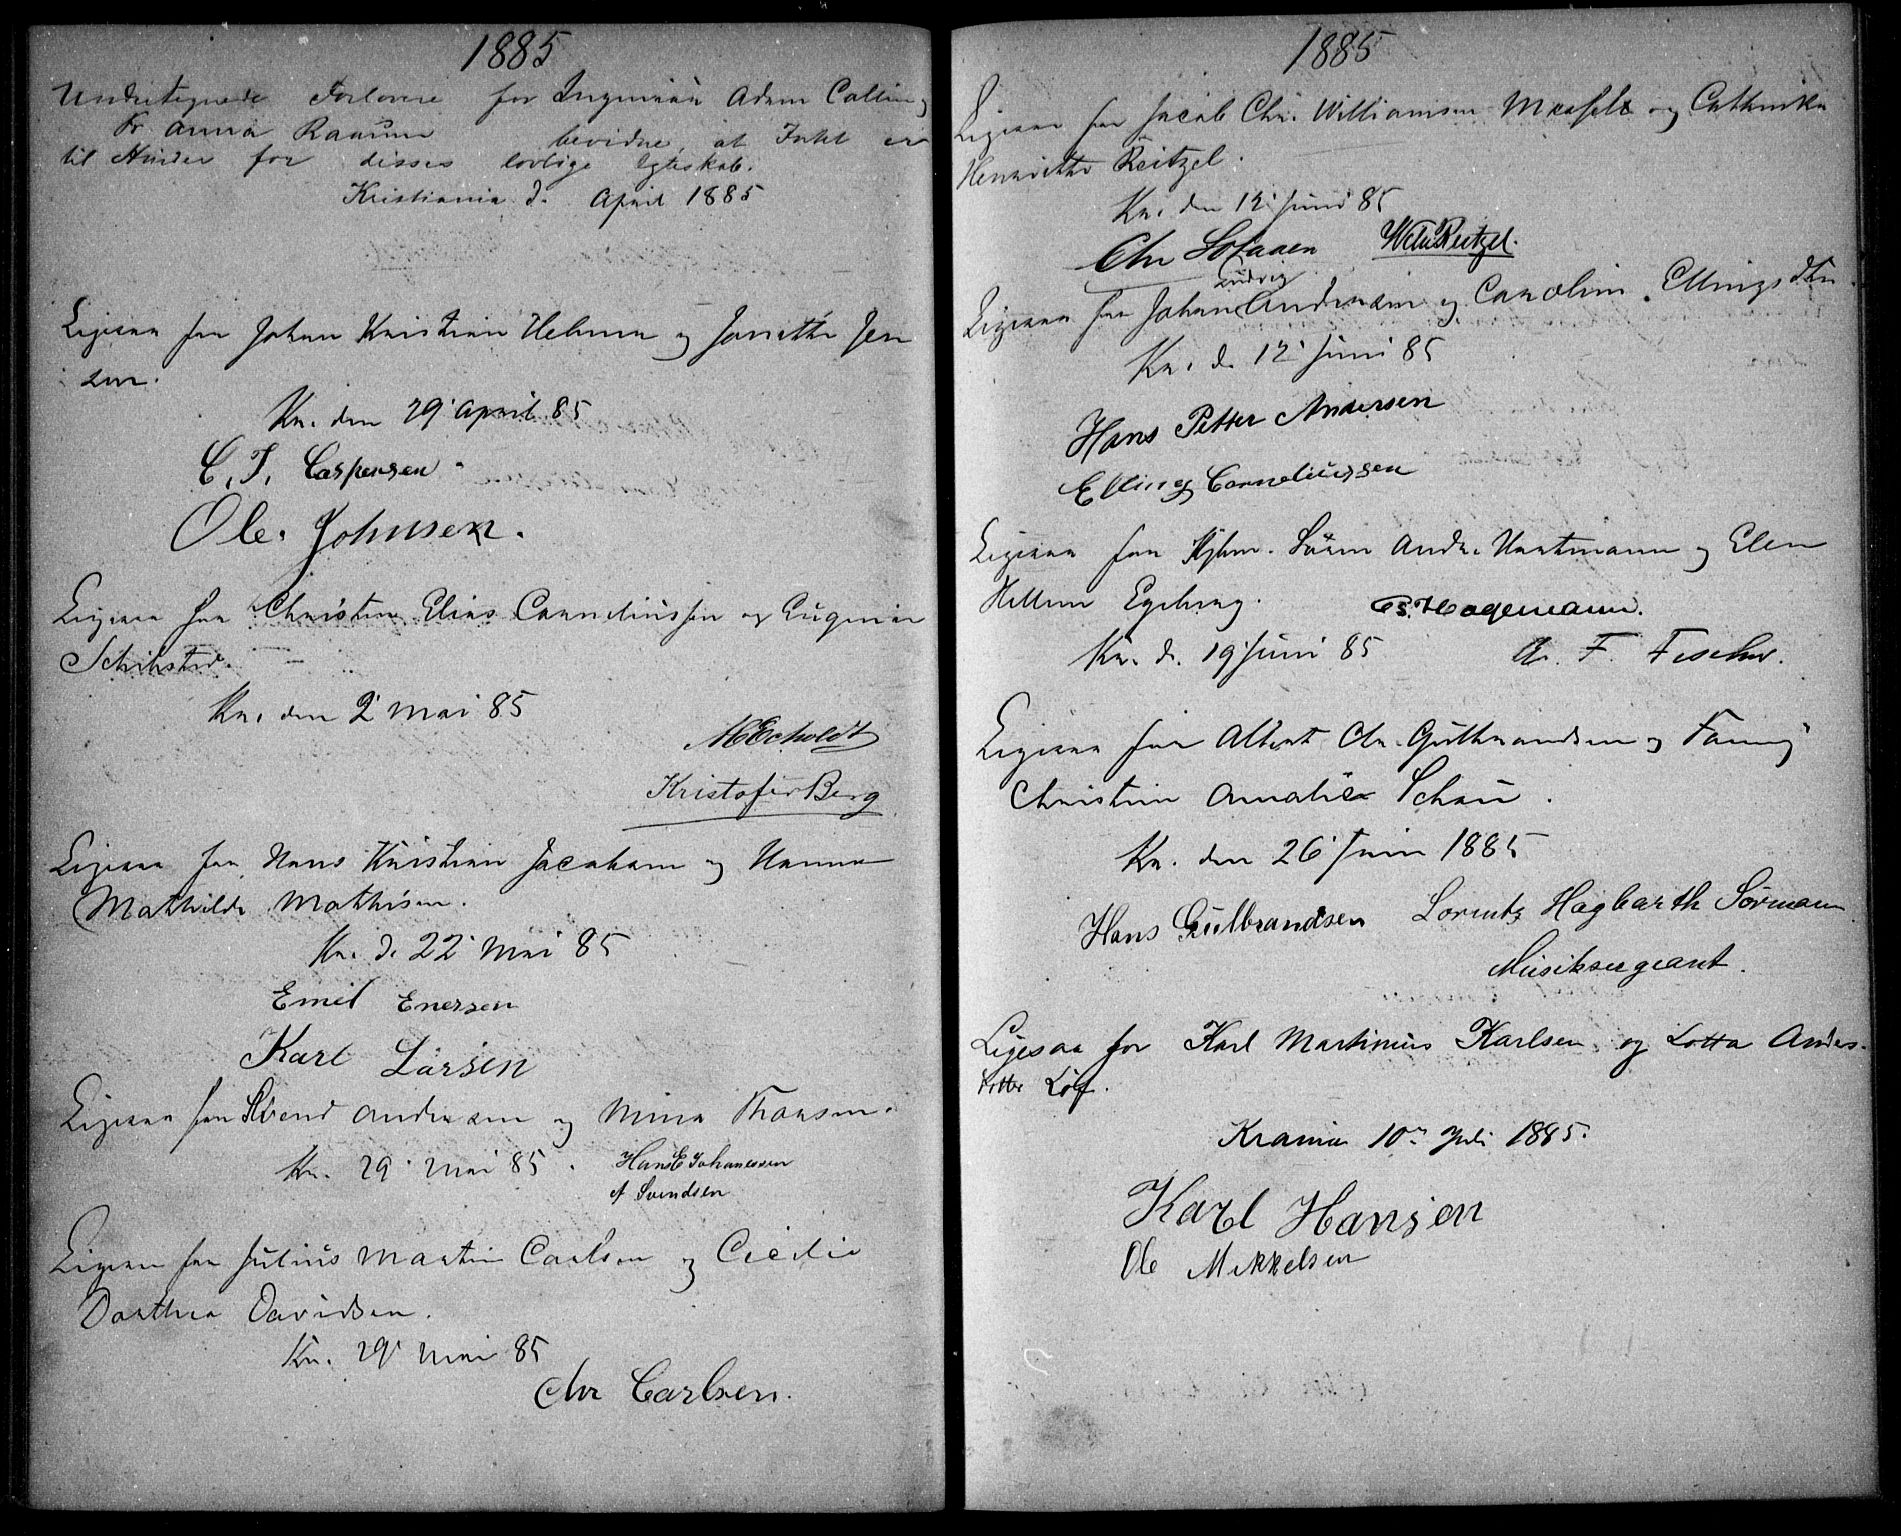 1885
Undertegnede Forlovere for Ingeniør Adam Collin og
Fr Anna Raaum bevidne, at Intet er
til Hinder for disses lovlige Egteskab.
Kristiania d. April 1885
Ligesaa for Johan Kristian Helmer og Janette Jen
sen.
Kr. den 29' April 85
C. F. Caspersen
Ole. Johnsen.
Ligesaa for Christen Elias Corneliussen og Eugenie
Schibsted.
Kr. den 2' Mai 85
Kristofer Berg
Ligesaa for Hans Kristian Jacobsen og Hanna
Mathilde Mathisen.
Kr. d. 22' Mai 85
Emil Enersen
Karl Larsen
Ligesaa for Svend Andersen og Mina Thoresen.
Kr. 29' Mai 85. Hans E Johanessen
A Svendsen
Ligesaa for Julius Martin Carlsen og Cecilie
Dorthea Davidsen.
Kr. 29' Mai 85
Chr Carlsen.
1885
Ligesaa for Jacob Chr. Williamsen og Cathrinka
Henriette Reitzel.
Kr. den 12' Juni 85
Chr Reitzel.
Ludvig
Ligesaa for Johan Andersen og Caroline Ellingsdtr.
Kr. d. 12' Juni 85
Hans Petter Andersen
Elling Corneliussen
Ligesaa for Søren Andr. Hartmann og Elen
Egeberg. Hagemann.
Kr. d. 19' Juni 85 F. Fischer.
Ligesaa for Albert Chr. Gulbrandsen og Fanny
Christine Amalie Schau.
Kr. den 26' Juni 1885
Hans Gulbrandsen Lorentz Hagbarth Sørmann
Musiksergeant.
Ligesaa for Karl Martinius Karlsen og Lotta Anders-
dotter Löf.
Krania 10de Juli 1885.
Karl Hansen
Ole Mikkelsen